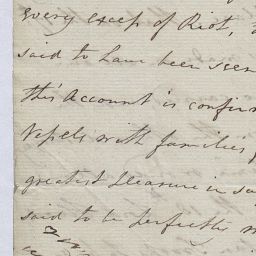 every excess of Riot,
said to have been seen
this Account is confir
Vessels with families
greatest pleasure in sa
said to be perfectly